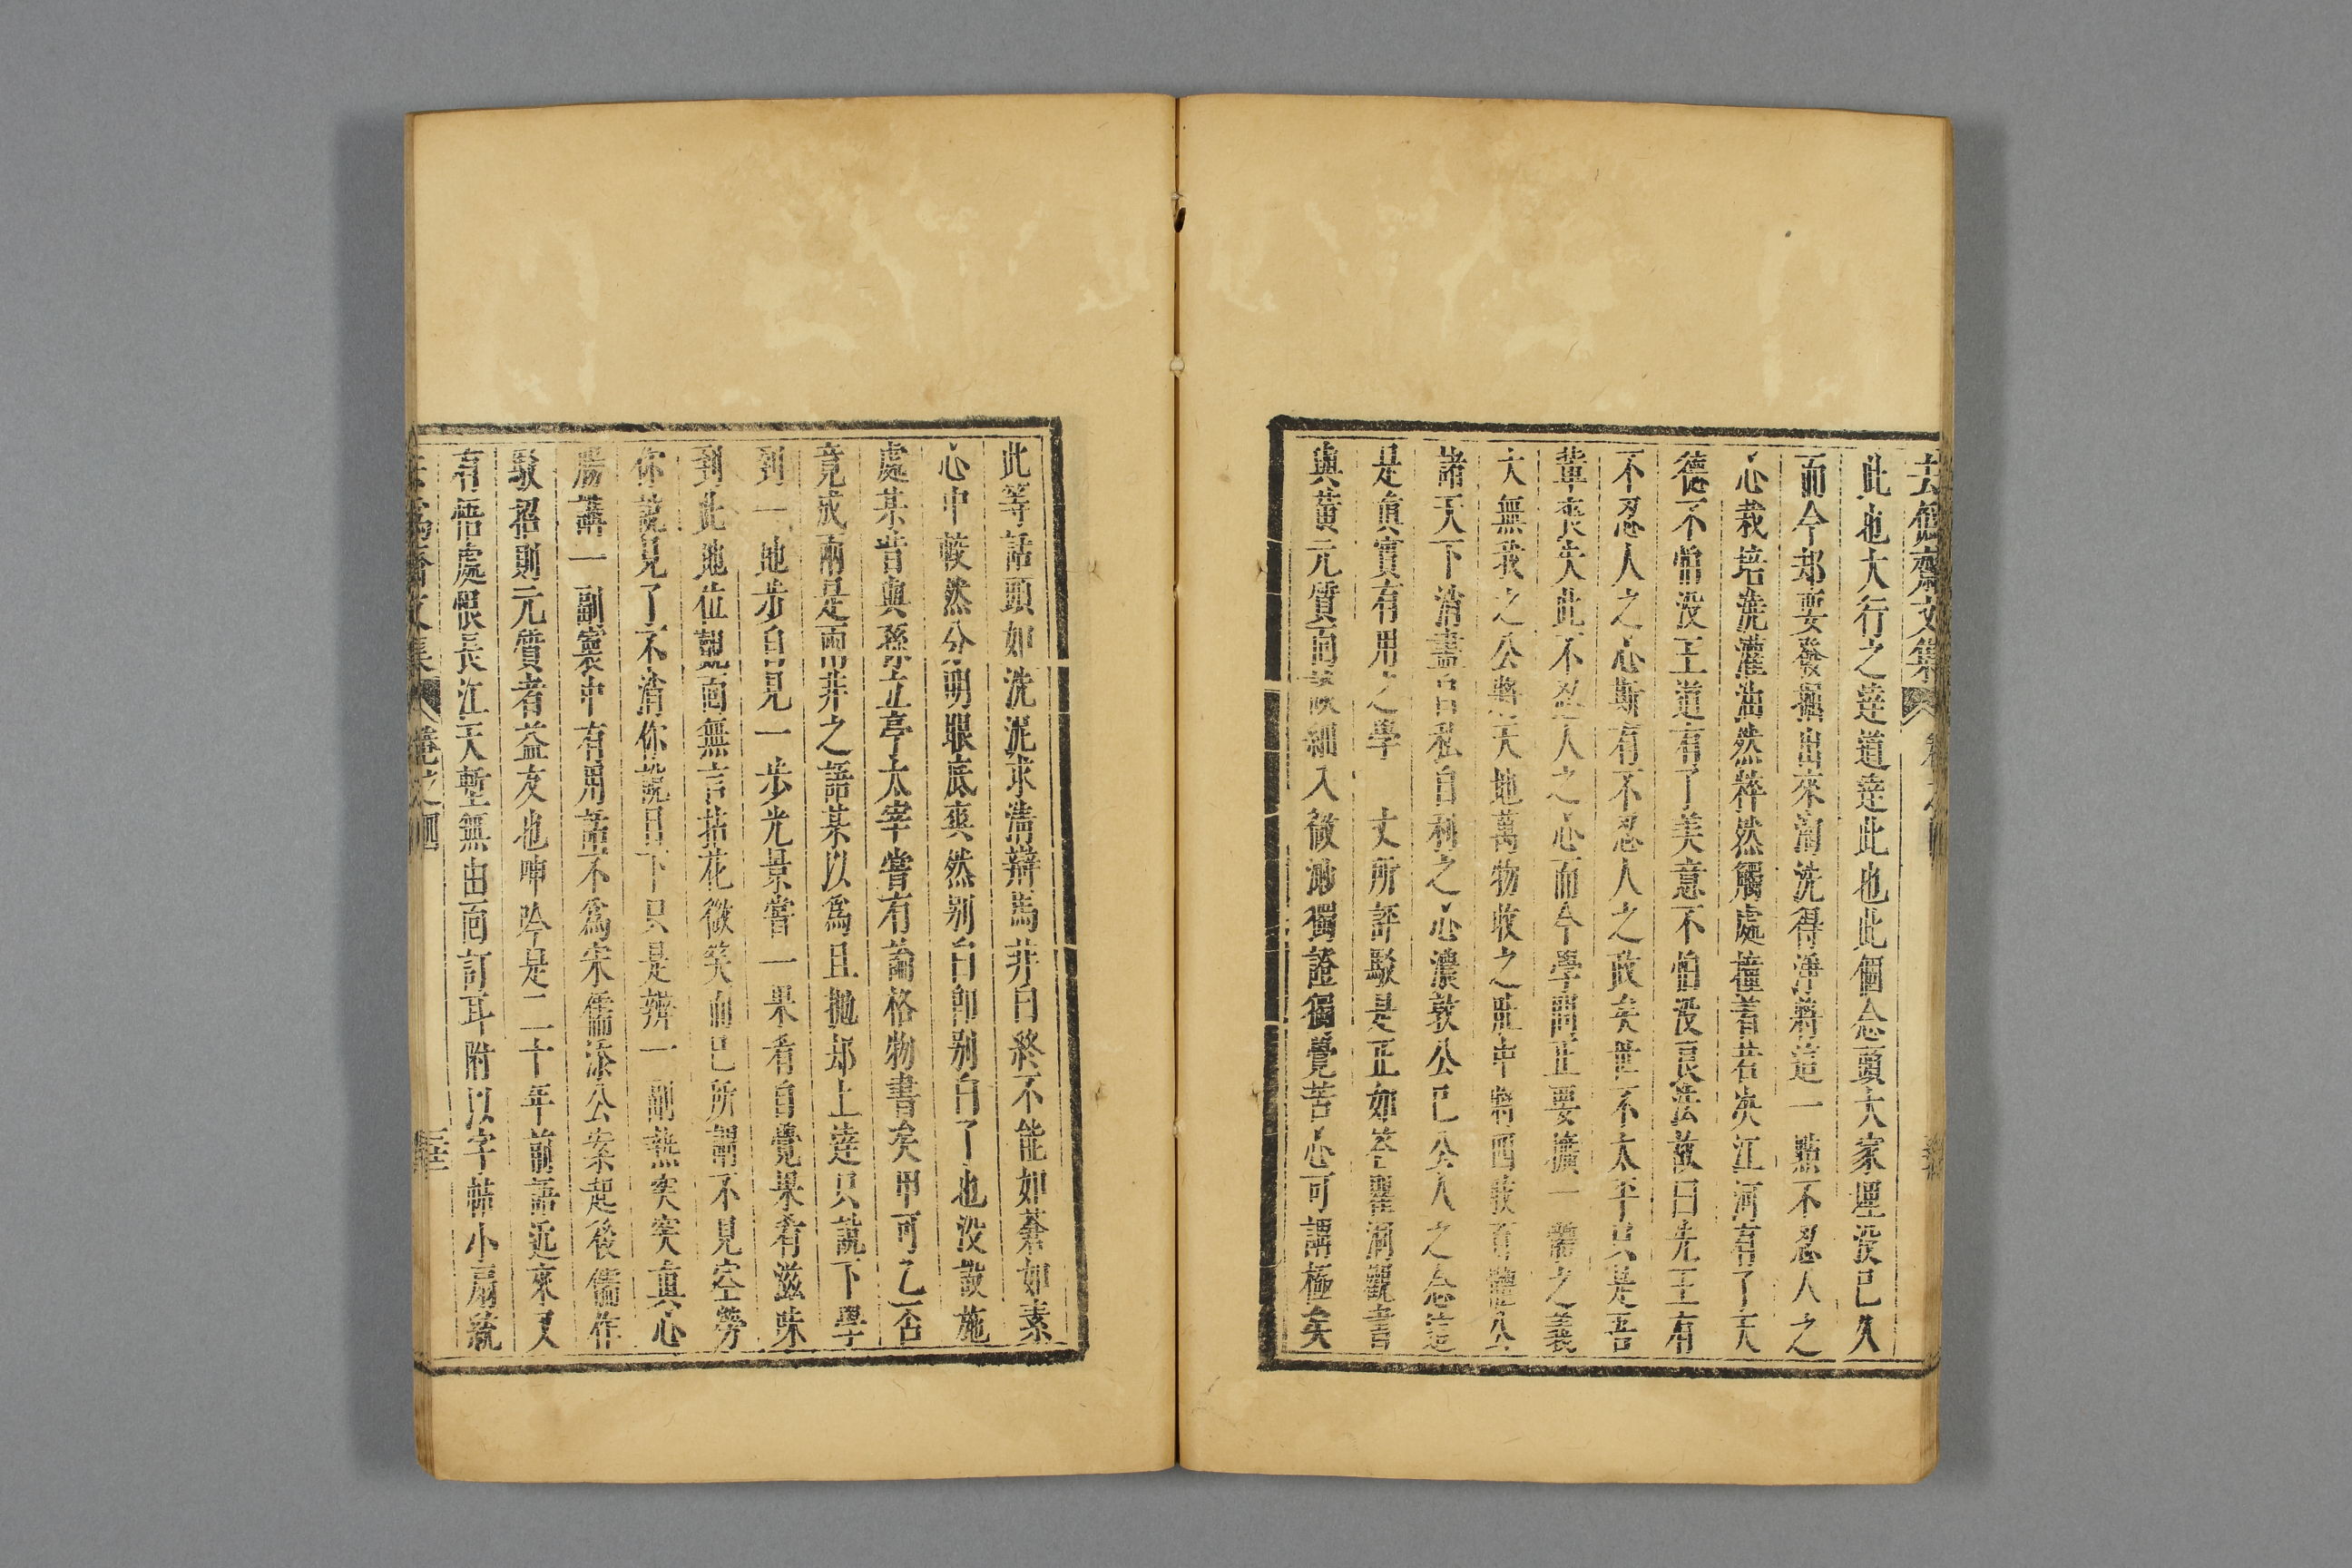 去僞齋文集 卷之四
此也大行之達道達此也此個念頭大家埋没已久
而今却要發掘出來淘洗得淨將這一點不忍人之
心栽培澆灌油然粹然觸處撞着若决江河有了天
德不怕没王道有了美意不怕没良法故曰先王有
不忍人之心斯有不忍人之政矣世不太平只是吾
輩丧失此不忍人之心而今學問正要擴一體之義
大無我之公將天地萬物收之肚中將四肢百體公
諸天下消盡自私自利之心濃敦公已公人之念這
是真實有用之學 丈所評駁是正如答瞿洞觀書
與黄元質面議細入微渺獨證獨覺苦心可謂極矣
此等話頭如洗泥求清辯馬非白終不能如蒼如素
心中較然分明眼底爽然别白卽别白了也没設施
處某昔與孫立亭太宰嘗有論格物書矣甲可乙否
竟成兩是兩非之語某以爲且抛却上達只說下學
到一地步自見一步光景嘗一果肴自覺果肴滋味
到此地位覿面無言拈花微笑而已所謂不見空勞
你說見了不消你說目下只是辦一副熱突突真心
腸講一副寰中有用話不爲宋儒添公案起後儒作
駁招則元質者益友也呻吟是二十年前語近來又
有悟處恨長江天塹無由面訂耳附以字帖小扇統
去僞齋文集 卷之四